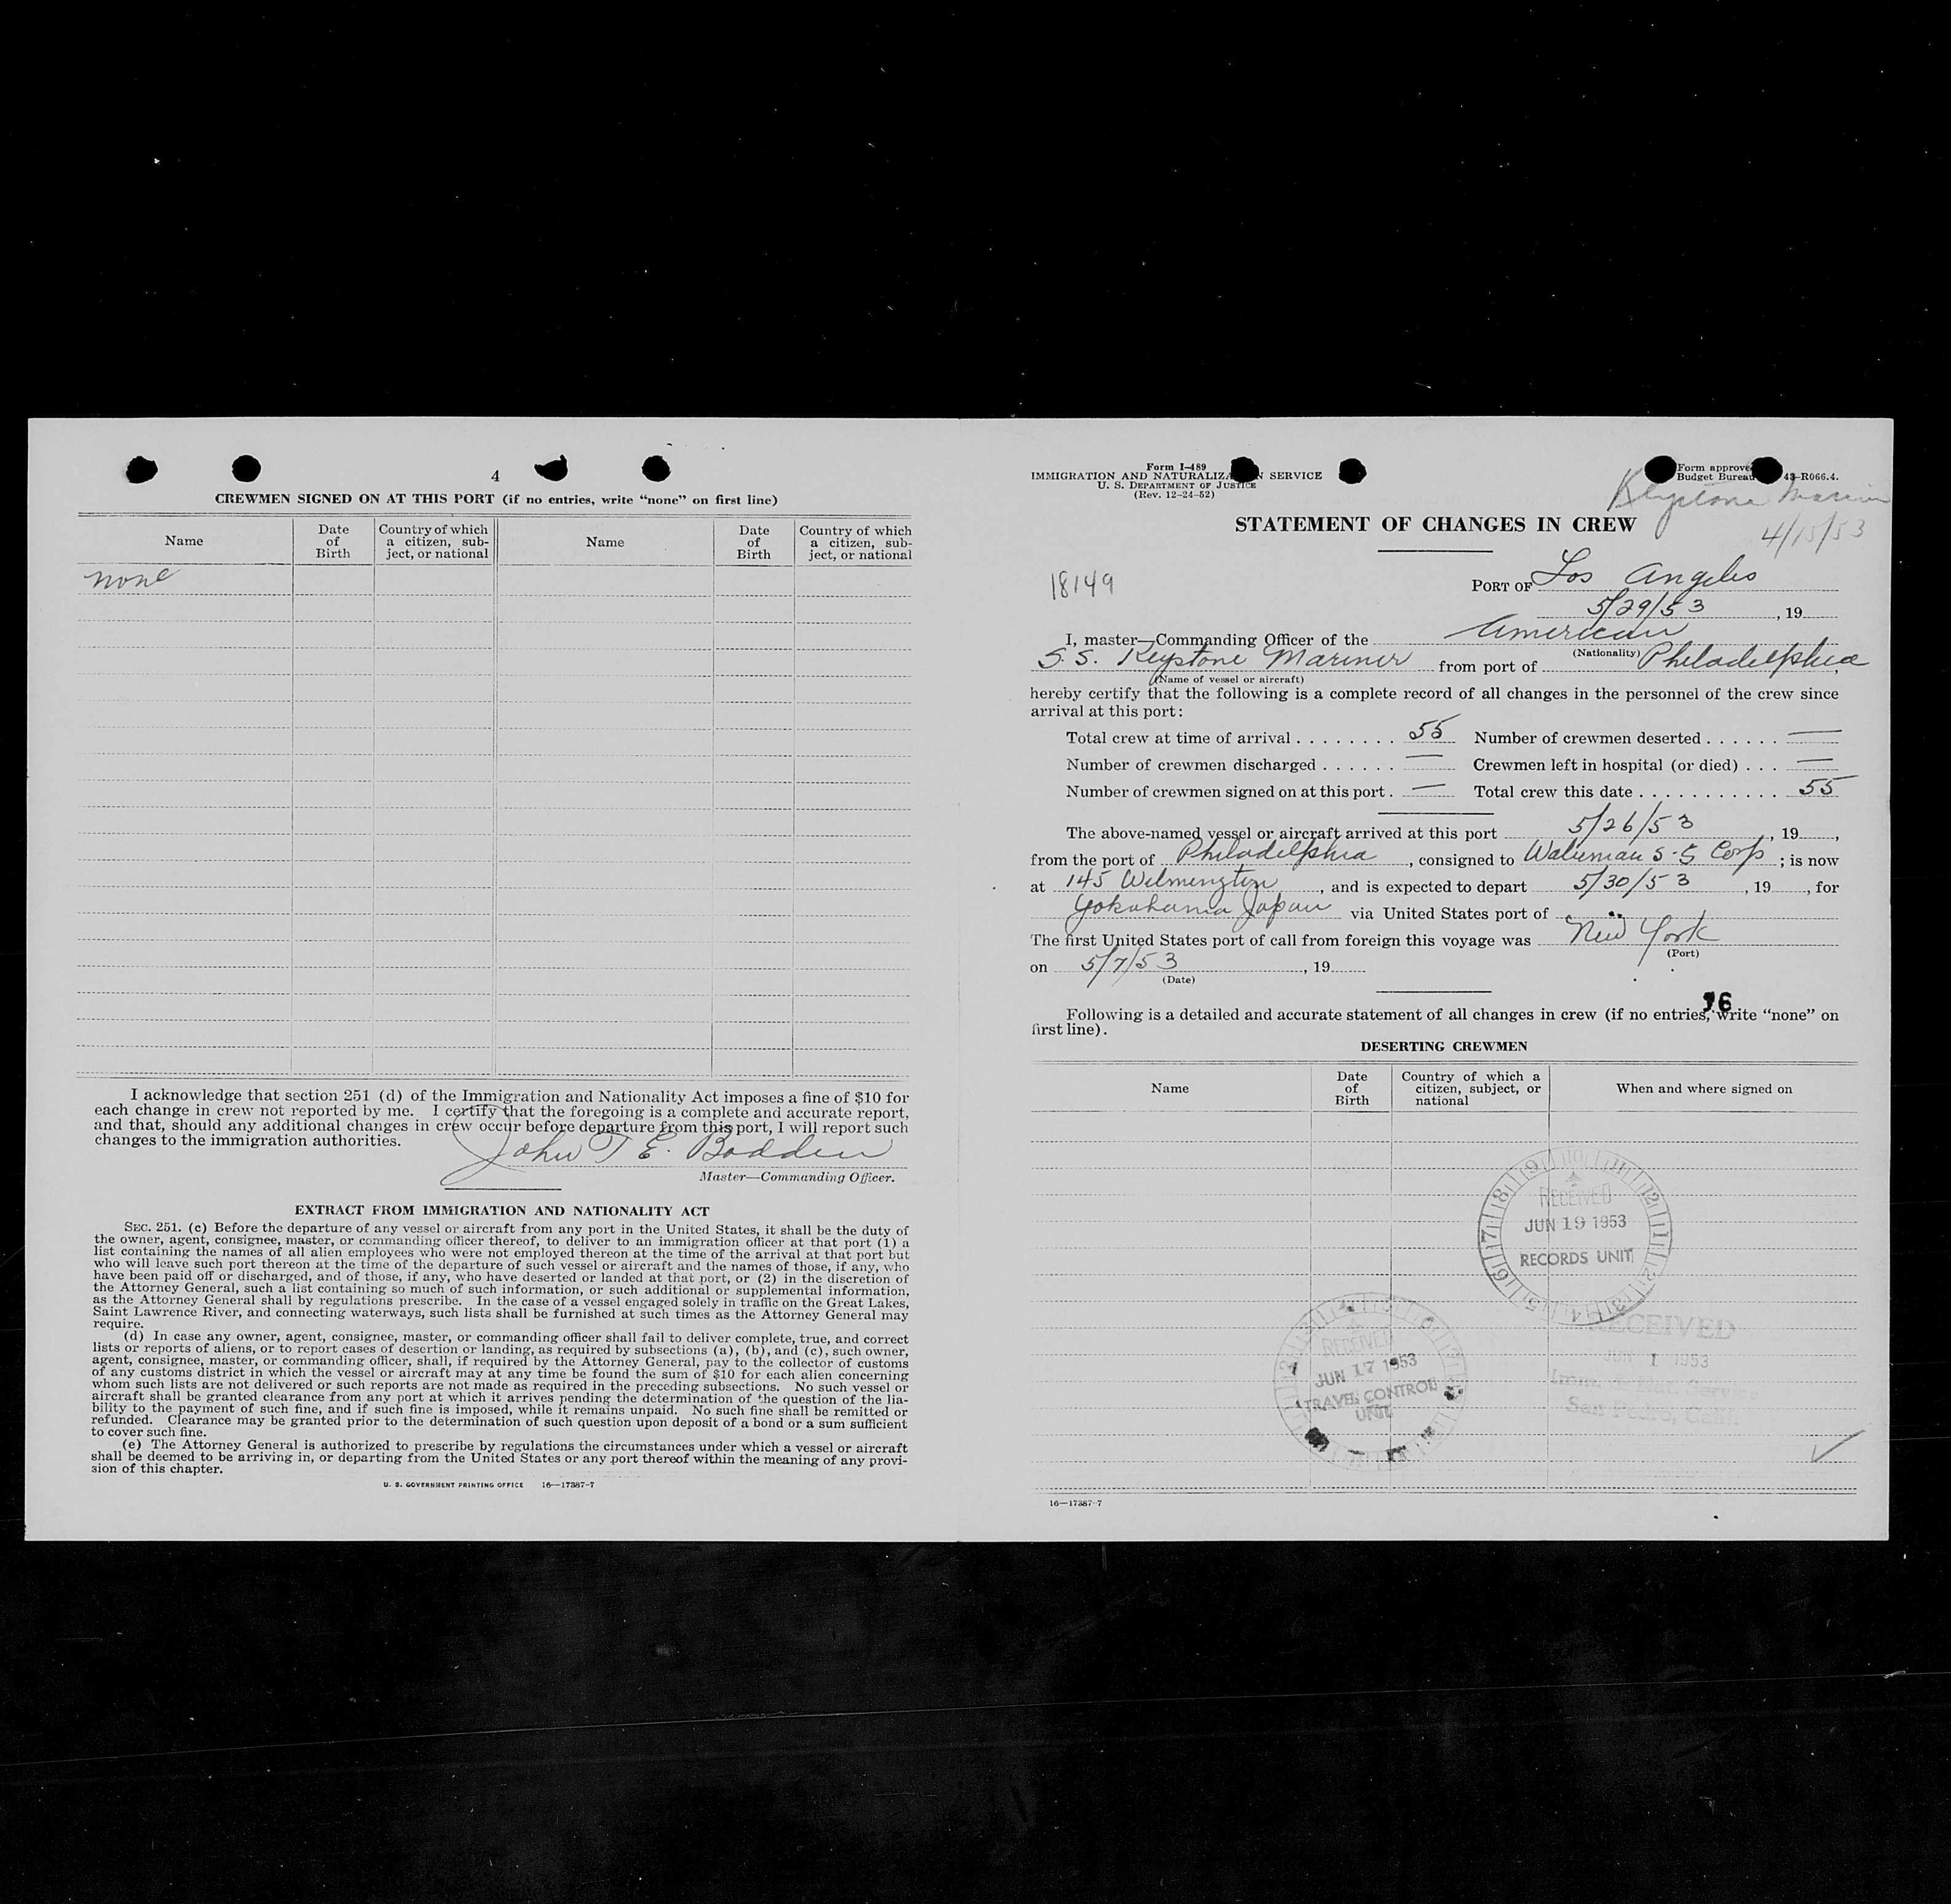 4
CREWMEN SIGNED ON AT THIS PORT (if no entries, write “none” on first line)
Name
Date of Birth
Country of which a citizen, subject, or national
Name
Date of Birth
Country of which a citizen, subject, or national
none
I acknowledge that section 251 (d) of the Immigration and Nationality Act imposes a fine of $10 for
each change in crew not reported by me. I certify that the foregoing is a complete and accurate report,
and that, should any additional changes in crew occur before departure from this port, I will report such
changes to the immigration authorities.
John T E. Bodden
Master—Commanding Officer.
EXTRACT FROM IMMIGRATION AND NATIONALITY ACT
SEC. 251. (c) Before the departure of any vessel or aircraft from any port in the United States, it shall be the duty of
the owner, agent, consignee, master, or commanding officer thereof, to deliver to an immigration officer at that port (1) a
list containing the names of all alien employees who were not employed thereon at the time of the arrival at that port but
who will leave such port thereon at the time of the departure of such vessel or aircraft and the names of those, if any, who
have been paid off or discharged, and of those, if any, who have deserted or landed at that port, or (2) in the discretion of
the Attorney General, such a list containing so much of such information, or such additional or supplemental information,
as the Attorney General shall by regulations prescribe. In the case of a vessel engaged solely in traffic on the Great Lakes,
Saint Lawrence River, and connecting waterways, such lists shall be furnished at such times as the Attorney General may
require.
(d) In case any owner, agent, consignee, master, or commanding officer shall fail to deliver complete, true, and correct
lists or reports of aliens, or to report cases of desertion or landing, as required by subsections (a), (b), and (c), such owner,
agent, consignee, master, or commanding officer, shall, if required by the Attorney General, pay to the collector of customs
of any customs district in which the vessel or aircraft may at any time be found the sum of $10 for each alien concerning
whom such lists are not delivered or such reports are not made as required in the preceding subsections. No such vessel or
aircraft shall be granted clearance from any port at which it arrives pending the determination of the question of the lia-
bility to the payment of such fine, and if such fine is imposed, while it remains unpaid. No such fine shall be remitted or
refunded. Clearance may be granted prior to the determination of such question upon deposit of a bond or a sum sufficient
to cover such fine.
(e) The Attorney General is authorized to prescribe by regulations the circumstances under which a vessel or aircraft
shall be deemed to be arriving in, or departing from the United States or any port thereof within the meaning of any provi-
sion of this chapter.
U. S. GOVERNMENT PRINTING OFFICE 16—17387-7
Form I-489
IMMIGRATION AND NATURALIZA N SERVICE
U. S. DEPARTMENT OF JUSTICE
(Rev. 12-24-52)
Form approve
Budget Bureau 43-R066.4.
Keystone Mariner
4/15/53
STATEMENT OF CHANGES IN CREW
18149
PORT OF Los Angeles
5/29/53, 19
I, master—Commanding Officer of the American
(Nationality)
S.S. Keystone Mariner from port of Philadelphia,
(Name of vessel or aircraft)
hereby certify that the following is a complete record of all changes in the personnel of the crew since
arrival at this port:
Total crew at time of arrival . . . . . . . . 55 Number of crewmen deserted . . . . . . —
Number of crewmen discharged . . . . . . — Crewmen left in hospital (or died) . . . —
Number of crewmen signed on at this port . — Total crew this date . . . . . . . . . . . . 55
The above-named vessel or aircraft arrived at this port 5/26/53, 19,
from the port of Philadelphia, consigned to S-S Corp; is now
at 145 Wilmington, and is expected to depart 5/30/53, 19, for
Yokohama Japan via United States port of
The first United States port of call from foreign this voyage was New York
(Port)
on 5/7/53, 19
(Date)
16
Following is a detailed and accurate statement of all changes in crew (if no entries, write “none” on
first line).
DESERTING CREWMEN
Name
Date of Birth
Country of which a citizen, subject, or national
When and where signed on
RECEIVED
JUN 19 1953
RECORDS UNIT
RECEIVED
JUN 17 1953
TRAVEL CONTROL
UNIT
RECEIVED
JUN 1 1953
Imm. & Nat. Service
San Pedro, Calif.
16—17387-7